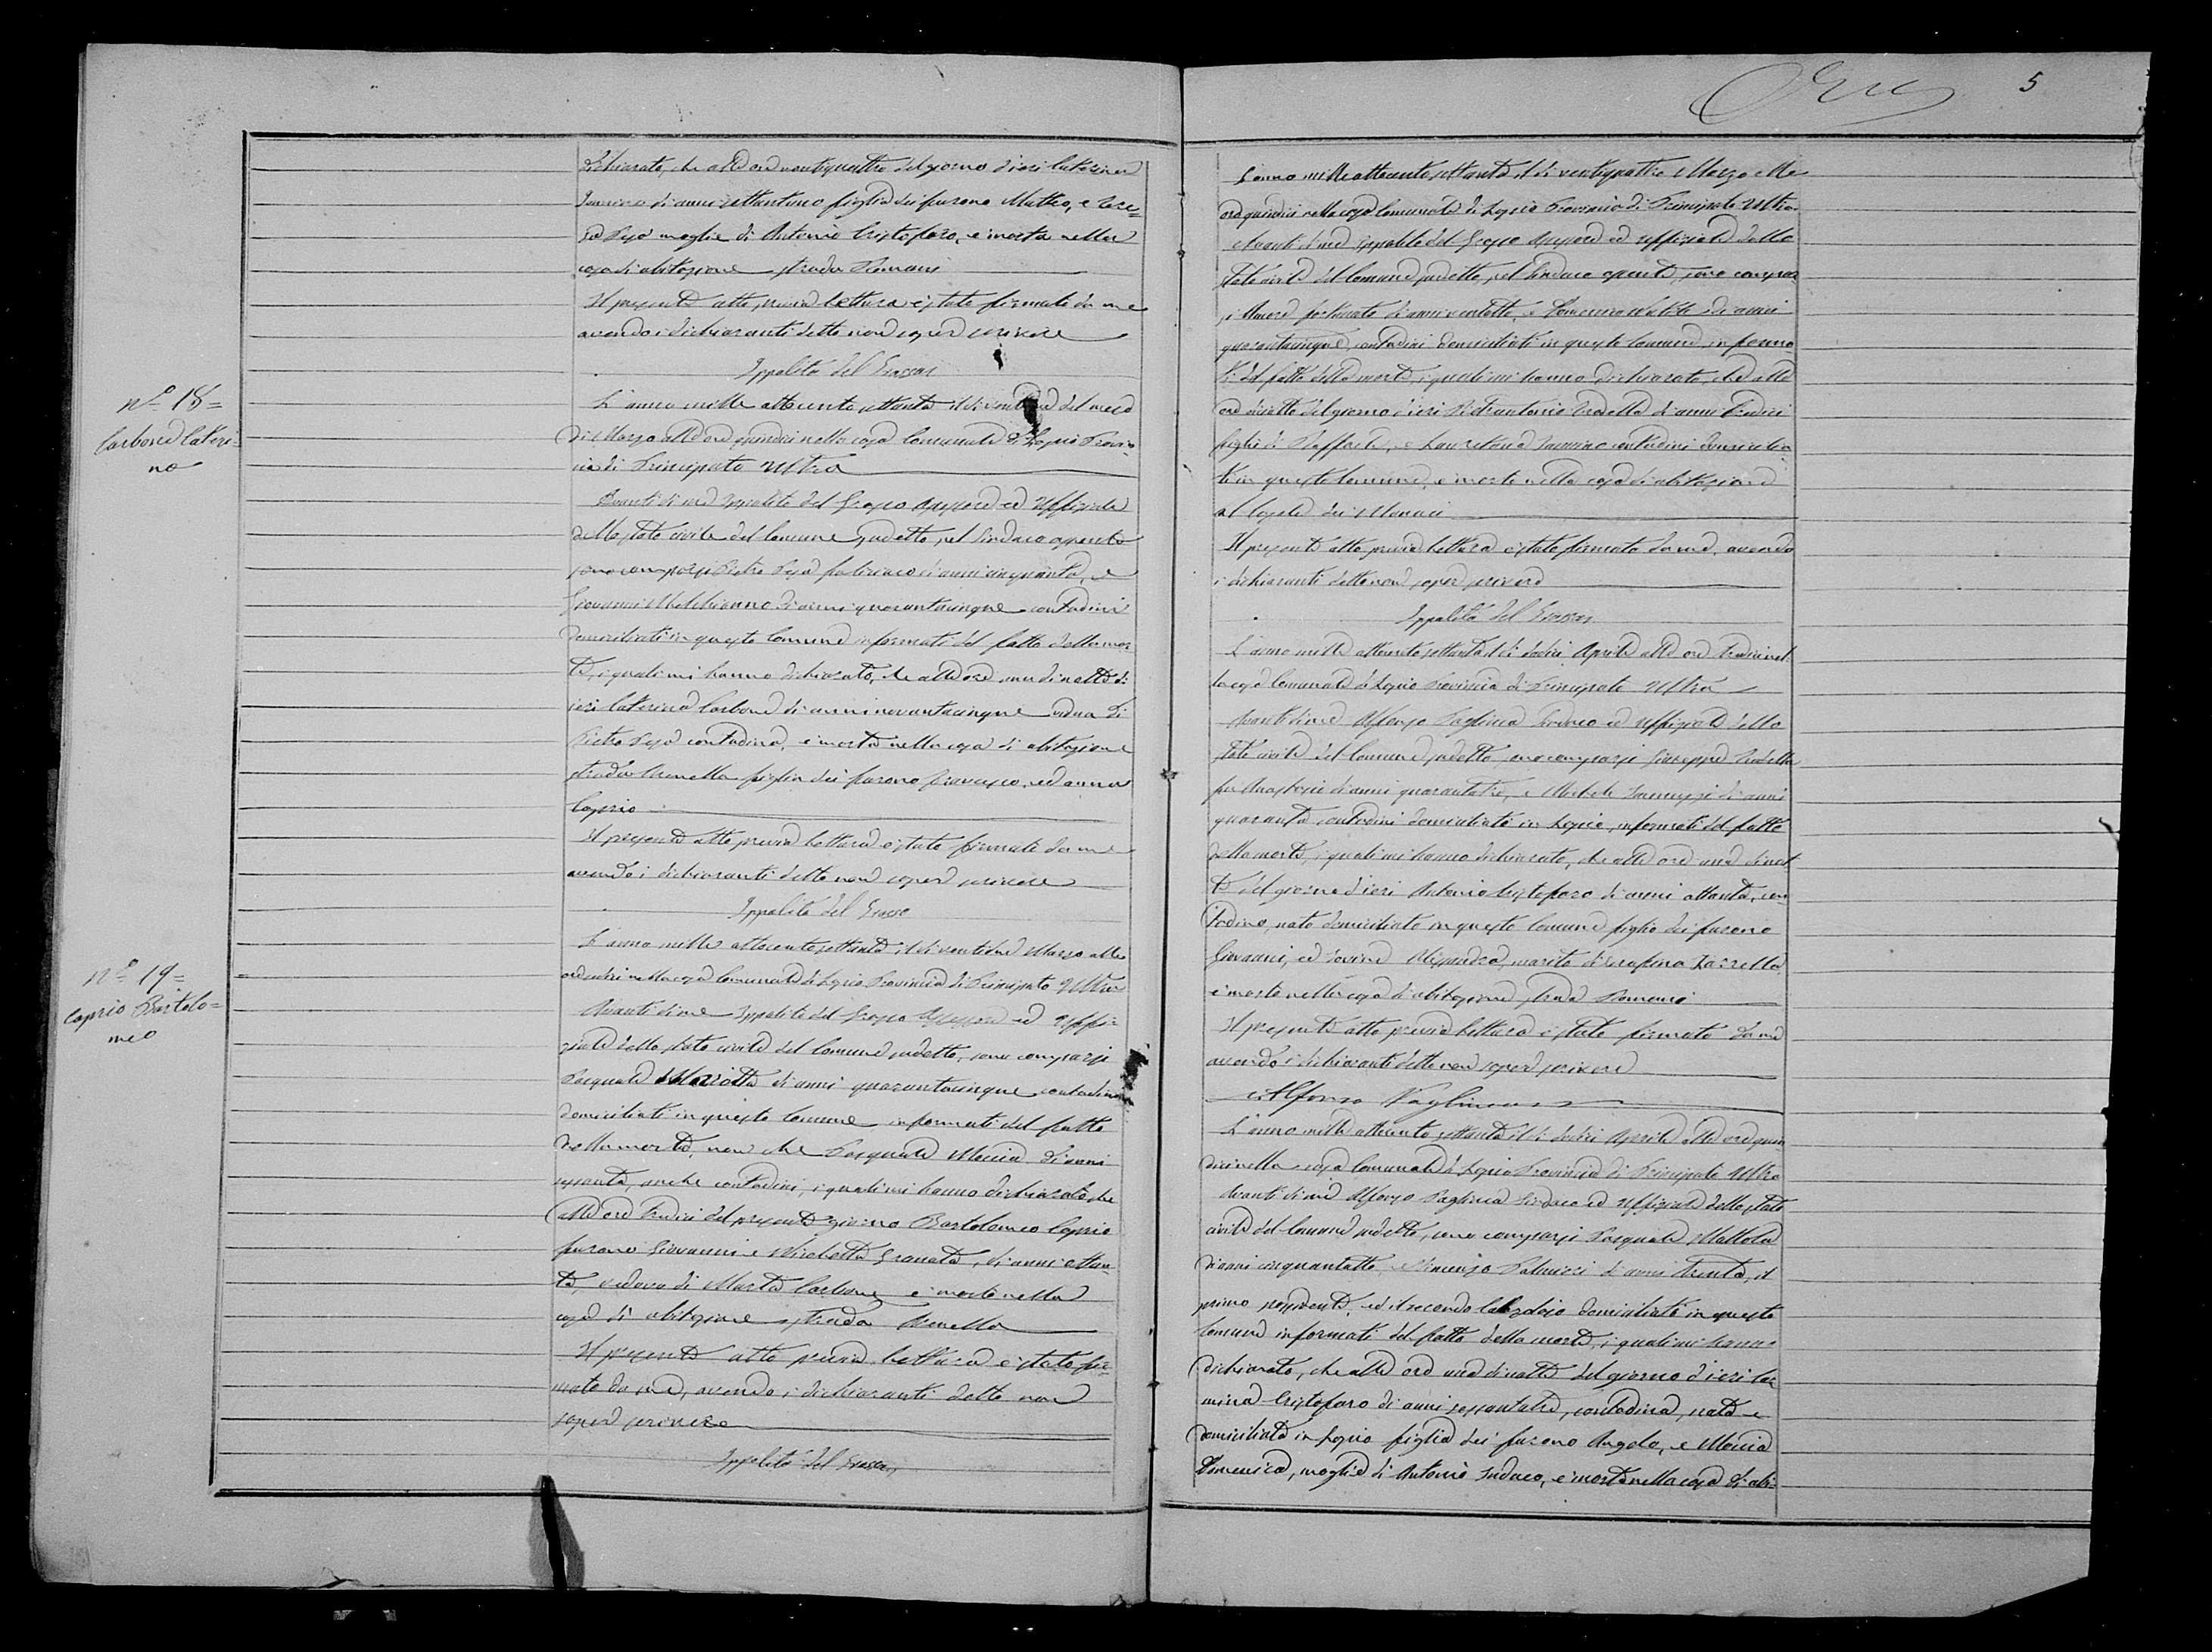 5
dichiarato, che alle ore ventiquattro del giorno d'ieri Caterina
Iannino di anni settantuno figlia dei furono Matteo, e Tere=
sa Pepe moglie di Antonio Cristofaro, è morta nella
casa di abitazione strada Romani
Il presente atto, previa lettura è stato firmato da me
avendo i dichiaranti detto non saper scrivere
Ippolito del Grosso
N.º 18=
Carbone Cateri=
na
L'anno mille ottocento settanta il dì del mese
di Marzo alle ore quindici nella casa Comunale di Lapio Provin=
cia di Principato Ultra
Avanti di me Ippolito del Grosso Assessore ed Uffiziale
dello stato civile del Comune sudetto, pel Sindaco assente
sono comparsi Pietro Pepe di anni cinquanta, e
Giovanni di anni quarantacinque contadini
domiciliati in questo Comune informati del fatto della mor
te, i quali mi hanno dichiarato, che alle ore una di notte di
ieri Caterina Carbone di anni novantacinque vedova di
Pietro Pepe contadina, è morta nella casa di abitazione
strada Arenella figlia dei furono Francesco, ed Anna
Caprio
Il presente atto previa lettura è stato firmato da me
avendo i dichiaranti detto non saper scrivere
Ippolito del Grosso
N.º 19=
Caprio Bartolo=
meo
L'anno mille ottocento settanta, il dì ventidue Marzo alle
ore nella casa Comunale di Lapio Provincia di Principato Ultra
Avanti di me Ippolito del Grosso Assessore ed Uffi=
ziale dello stato civile del Comune sudetto, sono comparsi
Pasquale di anni quarantacinque contadino
domiciliati in questo Comune informati del fatto
della morte, non che Pasquale Meccia di anni
sessanta, anche contadini, i quali mi hanno dichiarato, che
alle ore tredici del presente giorno Bartolomeo Caprio
furono Giovanni e Nicoletta Granata, di anni ottan=
ta, vedovo di Marta Carbone è morto nella
casa di abitazione strada Arenella
Il presente atto previa lettura è stato fir=
mato da me, avendo i dichiaranti detto non
saper scrivere
Ippolito del Grosso
L'anno mille ottocento settanta il dì ventiquattro Marzo alle
ore quindici nella casa Comunale di Lapio Provincia di Principato Ultra
Avanti di me Ippolito del Grosso Assessore ed Uffiziale dello
stato civile del Comune sudetto, pel Sindaco assente, sono compar
si Amore Fortunato di anni ventotto, e di anni
quarantacinque, contadini domiciliati in questo Comune, informa
ti del fatto della morte, i quali mi hanno dichiarato, che alle
ore diciotto del giorno d'ieri Pietrantonio di anni tredici
figlio di Raffaele, e Lauretana Iannino contadini domicilia
ti in questo Comune, è morto nella casa di abitazione
al Casale dei Monaci
Il presente atto previa lettura è stato firmato da me, avendo
i dichiaranti detto non saper scrivere
Ippolito del Grosso
L'anno mille ottocento settanta il dì dodici Aprile alle ore tredici nel
la casa Comunale di Lapio Provincia di Principato Ultra
Avanti di me Alfonso Paglinca Sindaco ed Uffiziale dello
stato civile del Comune sudetto, sono comparsi Giuseppe
fu Anastasio di anni quarantatre, e Michele di anni
quaranta contadini domiciliati in Lapio, informati del fatto
della morte, i quali mi hanno dichiarato, che alle ore una di not
te del giorno d'ieri Antonio Cristofaro di anni ottanta, con
tadino, nato domiciliato in questo Comune figlio dei furono
Giovanni, ed marito di Serafina
è morto nella casa di abitazione strada Romani
Il presente atto previa lettura è stato firmato da me
avendo i dichiaranti detto non saper scrivere
Alfonso Paglinca
L'anno mille ottocento settanta il dì dodici Aprile alle ore quin
dici nella casa Comunale di Lapio Provincia di Principato Ultra
Avanti di me Alfonso Paglinca Sindaco ed Uffiziale dello stato
civile del Comune sudetto, sono comparsi Pasquale Mottola
di anni cinquantotto, e Vincenzo di anni trenta, il
primo possidente, ed il secondo Calzolajo domiciliati in questo
Comune informati del fatto della morte, i quali mi hanno
dichiarato, che alle ore una di notte del giorno d'ieri Car
mina Cristofaro di anni sessantatre, contadina, nata e
domiciliata in Lapio figlia dei furono Angelo, e Meccia
Domenica, moglie di Antonio Sindaco, è morta nella casa di abi=